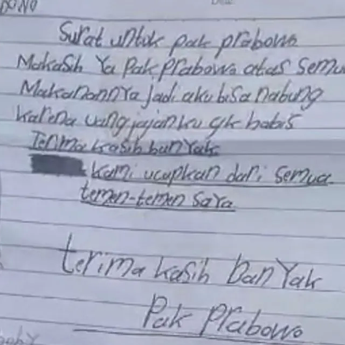 Surat untuk pak prabowo
Makasih Ya Pak prabowo atas semua
Makanannya jadi aku bisa nabung
karena uang jajanku gk habis
Terima kasih banyak
kami ucapkan dari semua
temen-temen saya
terima kasih banyak
Pak Prabowo